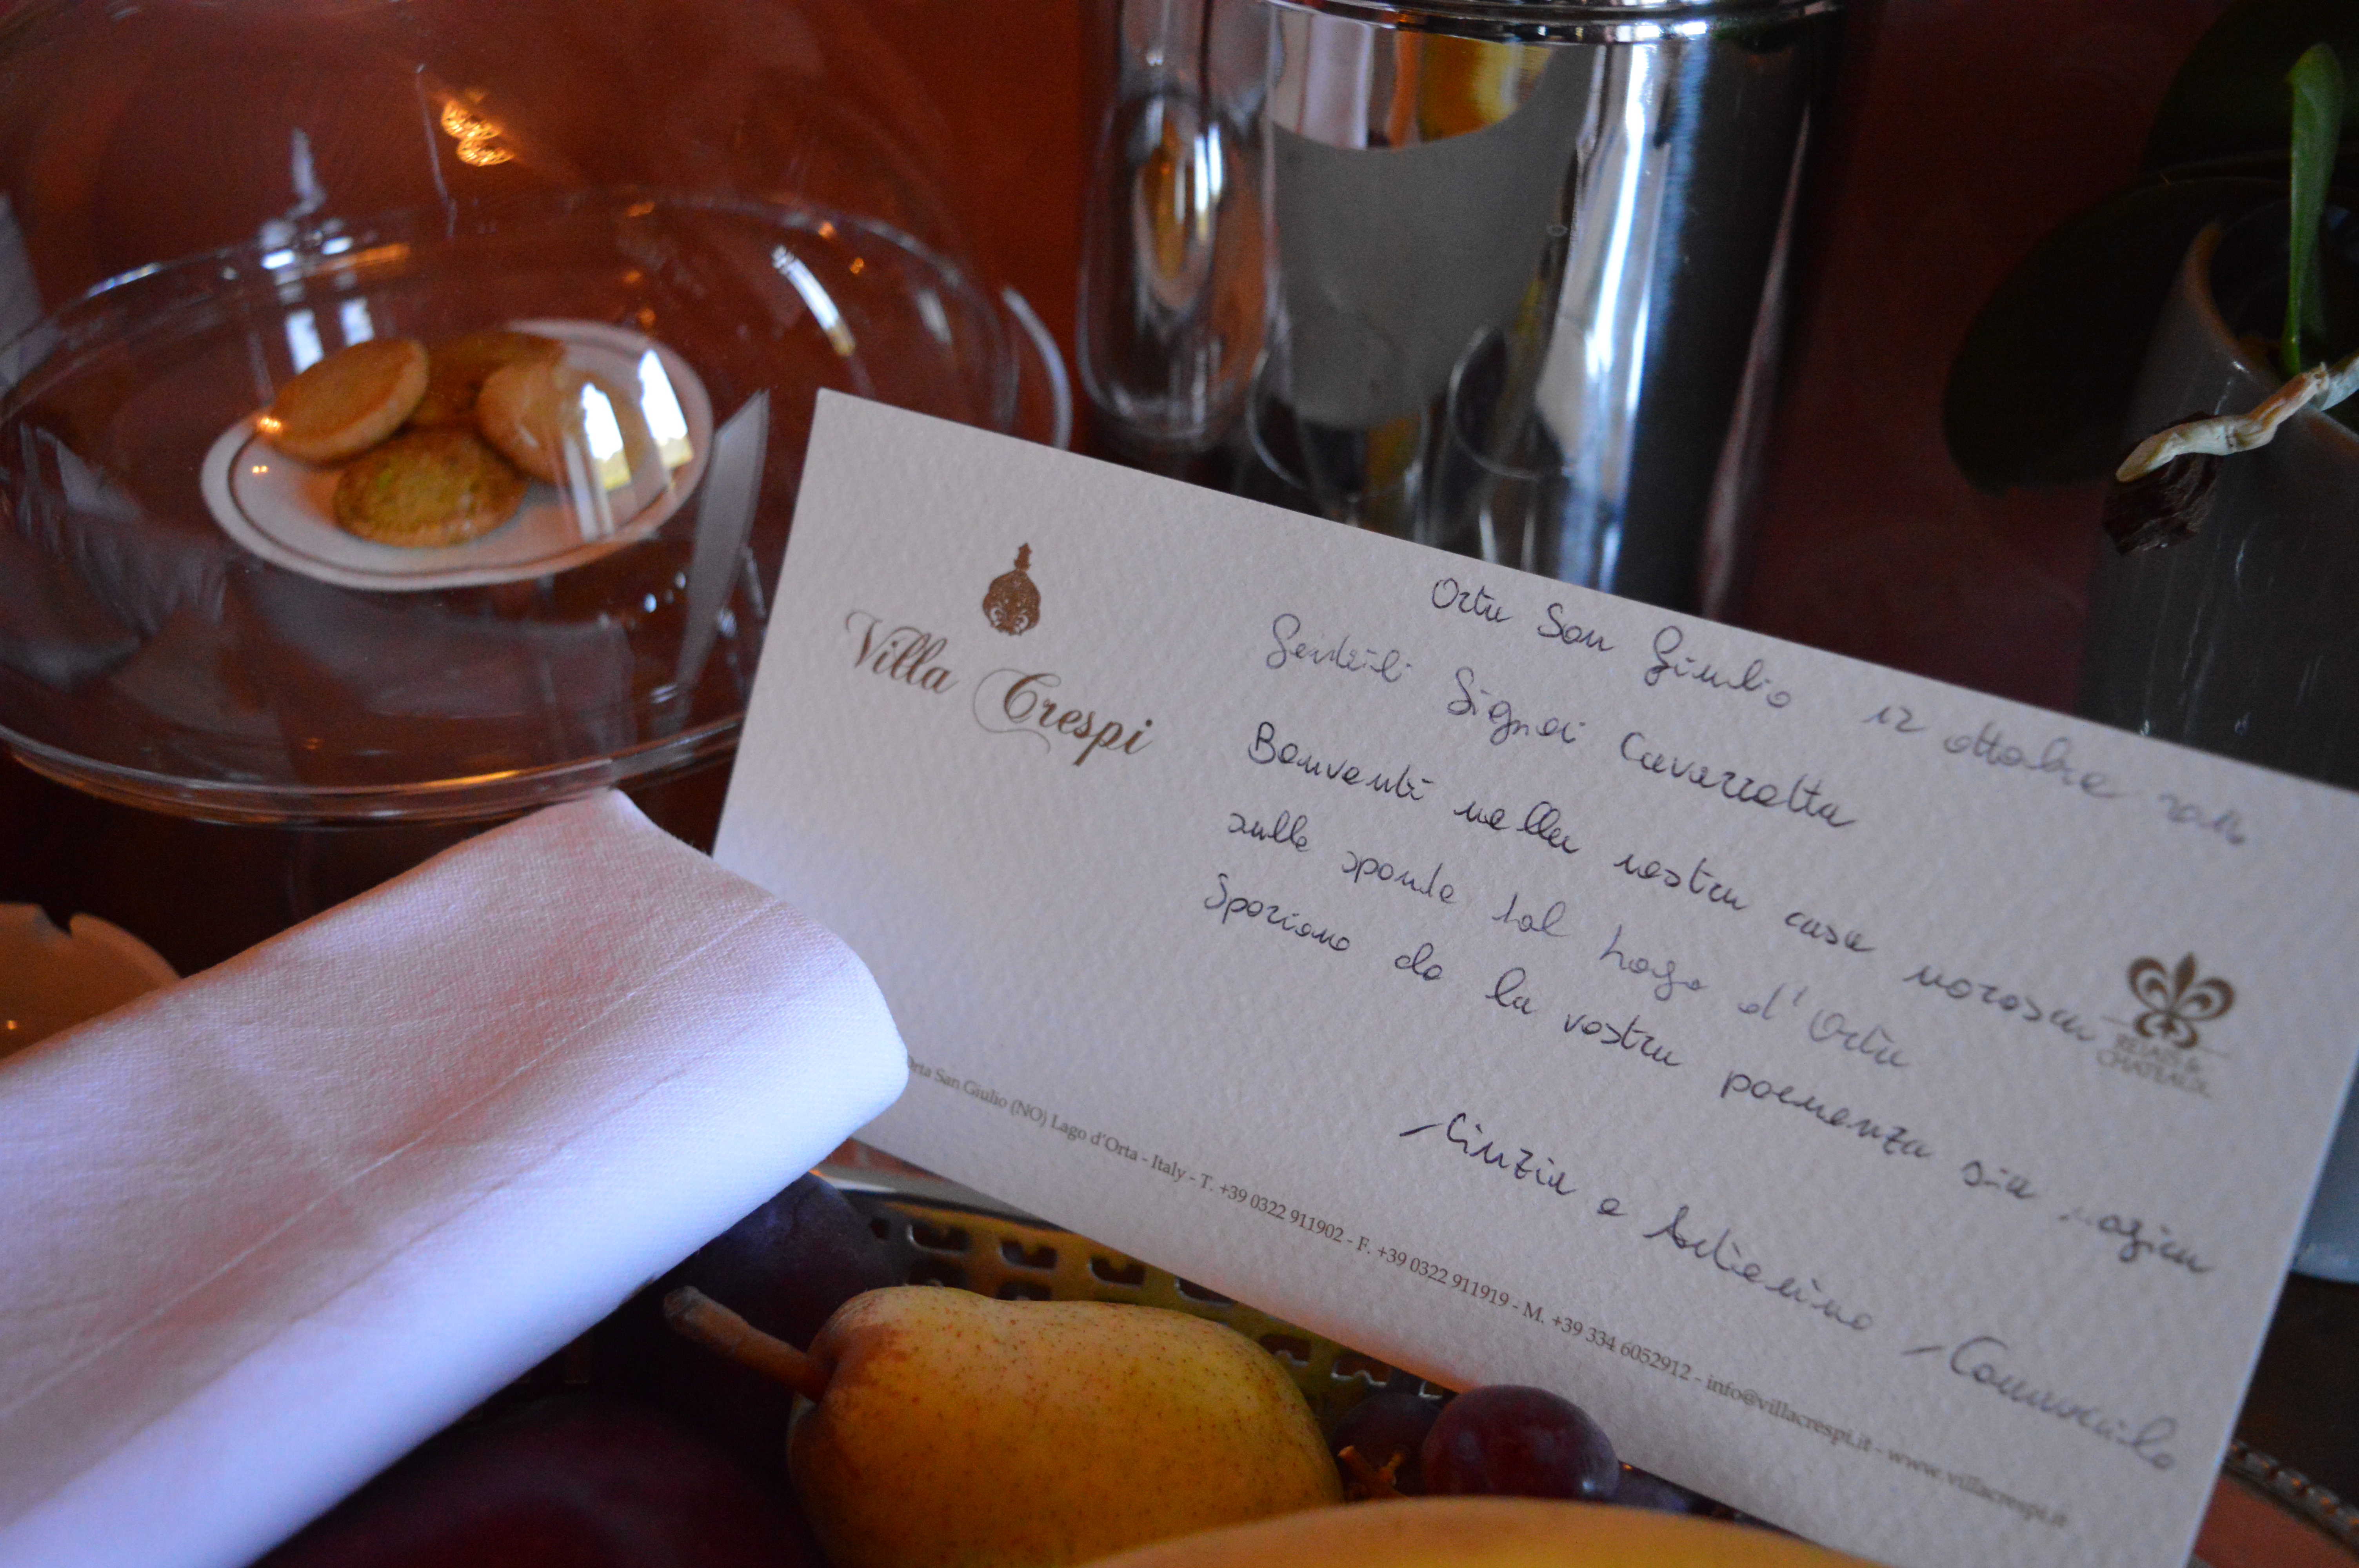 Villa Crespi
Orta San Giulio 12 ottobre
Gentili Signori Cavarretta
Benvenuti nella nostra casa moresca
sulle sponde del Lago d'Orta
Speriamo che la vostra permanenza sia magica
Cinzia e Antonino Cannavacciuolo
RELAIS &
CHATEAUX
Orta San Giulio (NO) Lago d'Orta - Italy - T. +39 0322 911902 - F. +39 0322 911919 - M. +39 334 6052912 - info@villacrespi.it - www.villacrespi.it